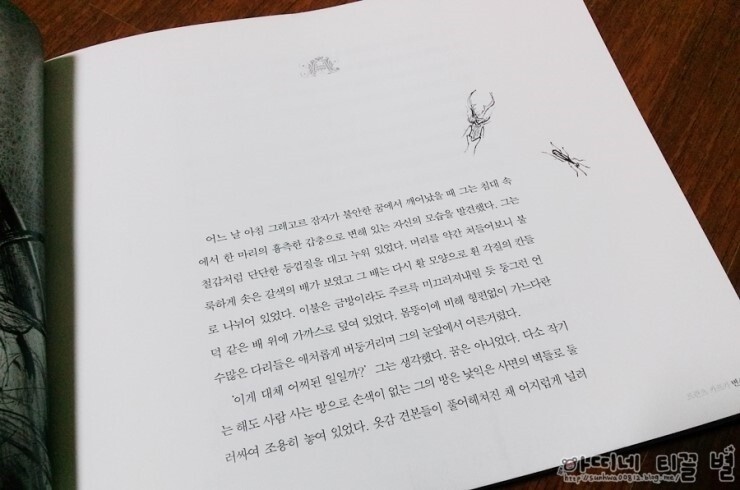 어느 날 아침 그레고르 잠자가 불안한 꿈에서 깨어났을 때 그는 침대 속
에서 한 마리의 흉측한 갑충으로 변해 있는 자신의 모습을 발견했다. 그는
철갑처럼 단단한 등껍질을 대고 누워 있었다. 머리를 약간 쳐들어보니 불
룩하게 솟은 갈색의 배가 보였고 그 배는 다시 활 모양으로 휜 각질의 칸들
로 나뉘어 있었다. 이불은 금방이라도 주르륵 미끄러져내릴 듯 둥그런 언
덕 같은 배 위에 가까스로 덮여 있었다. 몸뚱이에 비해 형편없이 가느다란
수많은 다리들은 애처롭게 버둥거리며 그의 눈앞에서 어른거렸다.
'이게 대체 어찌된 일일까?' 그는 생각했다. 꿈은 아니었다. 다소 작기
는 해도 사람 사는 방으로 손색이 없는 그의 방은 낯익은 사면의 벽들로 둘
러싸여 조용히 놓여 있었다. 옷감 견본들이 풀어헤쳐진 채 어지럽게 널려
프란츠 카프카 변신
아띠네 티끌 별